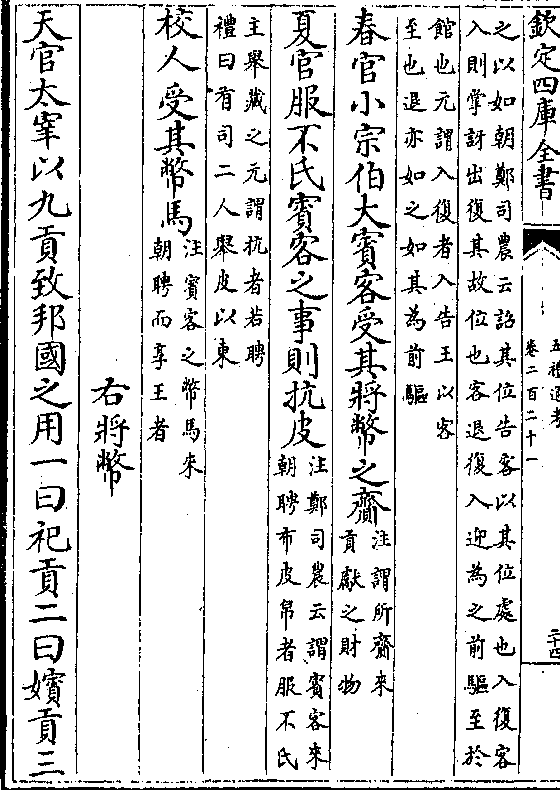 欽定四庫全書
五禮通考
卷二百二十一
二十四
之以如朝鄭司農云詔其位告客以其位處也入復客
入則掌訝出復其故位也客退復入迎為之前驅至於
館也元謂入復者入告王以客
至也退亦如之如其為前驅
春官小宗伯大賓客受其將幣之齎
注謂所齎來
貢獻之財物
夏官服不氏賓客之事則抗皮
注鄭司農云謂賓客來
朝聘布皮帛者服不氏
主舉藏之元謂抗者若聘
禮曰有司二人舉皮以東
校人受其幣馬
注賓客之幣馬來
朝聘而享王者
右將幣
天官太宰以九貢致邦國之用一曰祀貢二曰嬪貢三